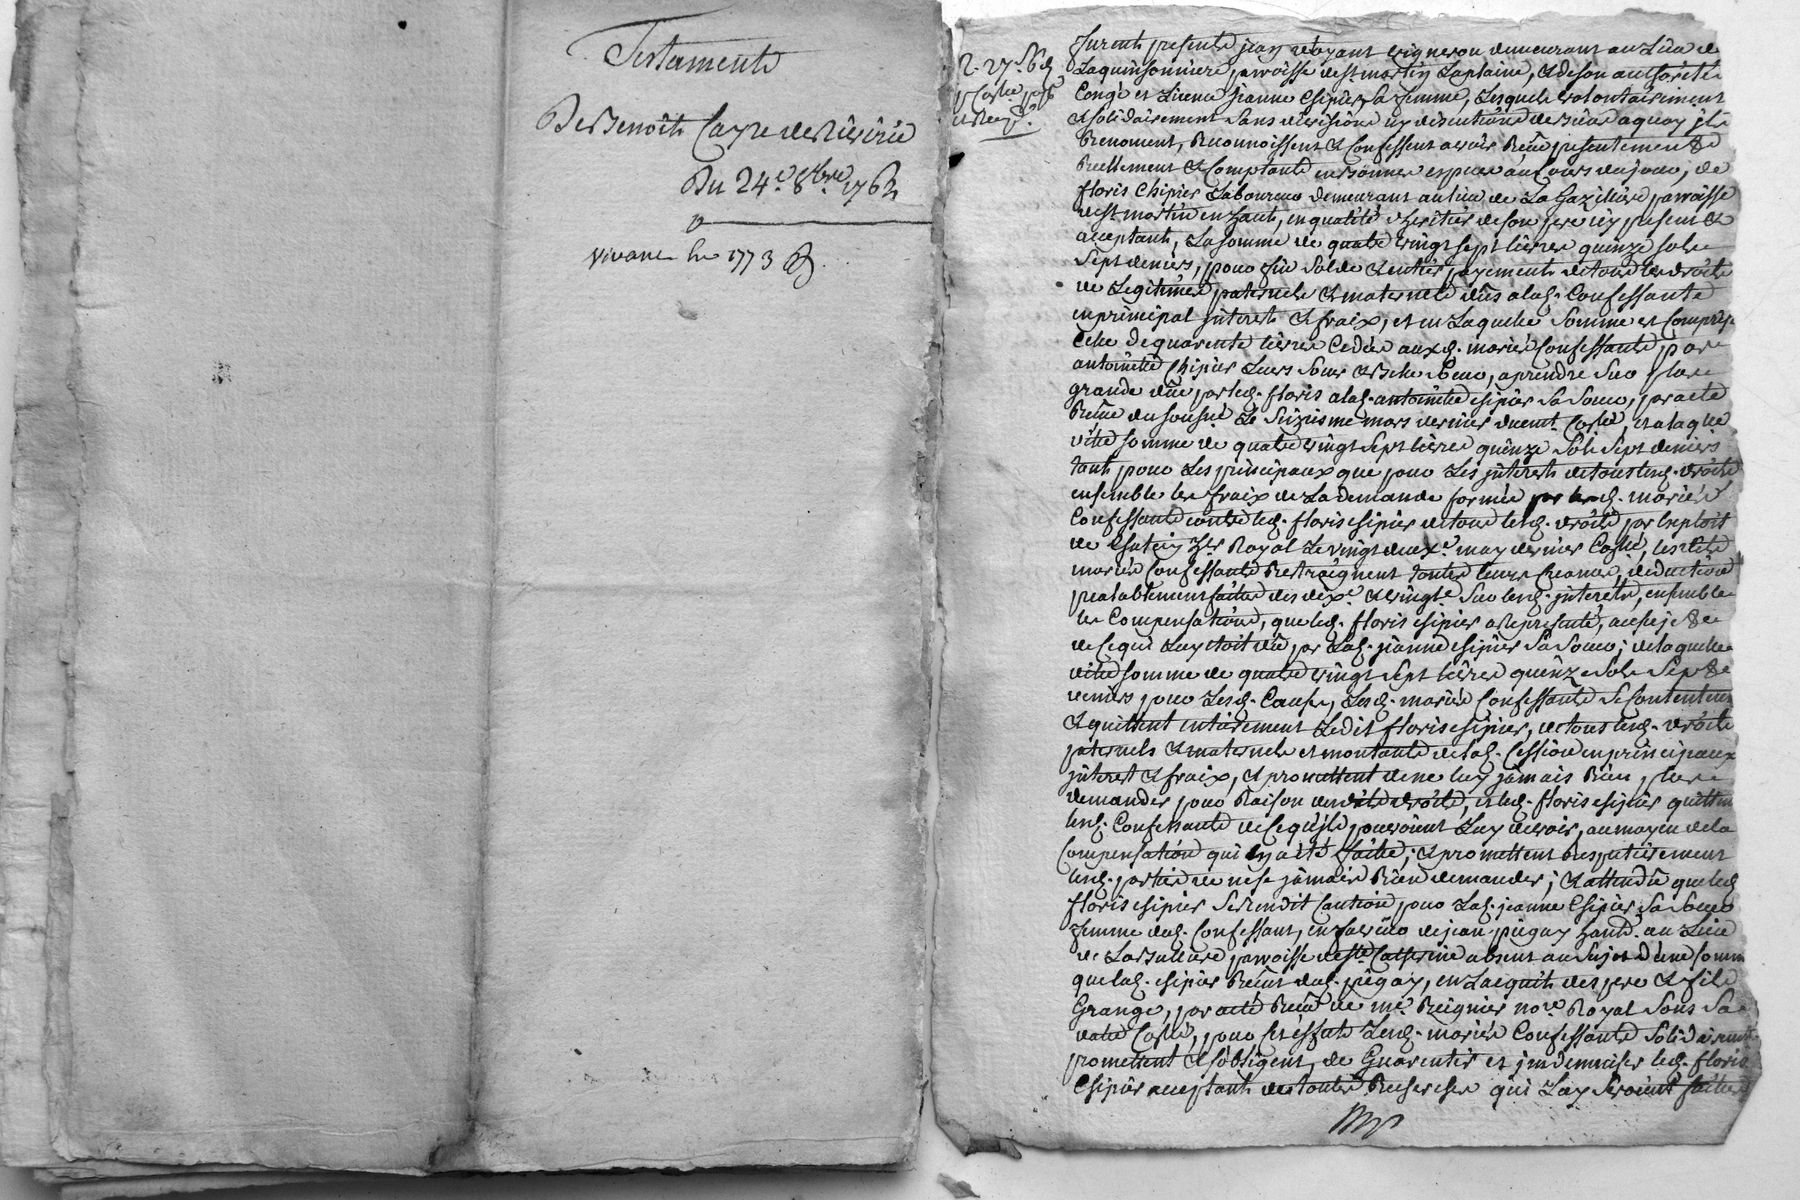 Testament
De Benoit Cayre de Riverie
Du 24e. 8bre. 1762
vivant en 1773
Furent presents jean royant vigneron demeurant au Lieu de
Laquinsonniere paroisse de st martin Laplaine, & de son authorité
Congé et Licence jeanne Chipier Sa femme, Lesquels volontairement
& solidairement sans division ny discution de biens a quoy ils
Renoncent, Reconnoissent & Confessent avoir Reçu presentement &
Reellement & Comptant en bonnes especes au Cours du jour, de
floris Chipier Laboureur demeurant au lieu de La Gaziliere paroisse
de st martin en haut, en qualité d'heritier de son pere icy present &
acceptant, La somme de quatre vingt sept livres quinze sols
Sept deniers, pour fin solde & entier payement de tous les droits
de Legitimes paternels & maternels dûs a lad. Confessante
en principal interets & fraix, et en Laquelle somme est Comprise
Celle de quarente livres Cedée auxd. mariés Confessants par
antoinette Chipier Leurs soeur & belle soeur, a prendre sur plus
grande düe par led. floris a lad. antoinette chipier Sa Soeur, par acte
Reçu du soussigné Le Sixiesme mars dernier duement Collé, et a laquelle
ditte somme de quatre vingt sept livres quinze Sols Sept deniers
tant pour Les principaux que pour Les interets de tous lesd. droits
ensemble les fraix de La demande formée par lesd. mariés
Confessants contre led. floris chipier de tous lesd. droits par Exploit
de Royal Le vingt deuxe. may dernier Collé, lesdits
mariés Confessants Restreignent toutes leurs Creances, deduction
prealablement faitte des dixe. & vingte. sur lesd. interets, ensemble
les Compensations, que led. floris chipier a representé, au sujet
de Ce qui Luy étoit dû par Lad. jeanne chipier Sa Soeur; de laquelle
ditte somme de quatre vingt sept livres quinze sols sept
deniers pour Lesd. Causes, Lesd. mariés Confessants se Contentent
& quittent entierement Ledit floris chipier, de tous lesd. droits
paternels & maternels et montants de lad. Cession en principaux
interet & fraix, & promettent de ne luy jamais Rien plus
demander pour Raison desdits droits, et led. floris chipier quitte
lesd. Confessants de Ce qu'ils pouvoient Luy devoir, au moyen de la
Compensation qui en a été faitte; & promettent Respectivement
lesd. parties de ne se jamais Rien demander; & attendû que led.
floris chipier se Rendit Caution pour Lad. jeanne Chipier Sa Soeur
femme dud. Confessant, en faveur de jean pigay hant. au Lieu
de paroisse de ste Catherine absent au Sujet d'une somme
que lad. chipier Reçut dud. pigay, en Lacquit des pere & fils
Grange, par acte Reçu de me. Reignier nore. Royal Sous Sa
datte Collé, pour Cet effet Lesd. mariés Confessants Solidairement
promettent & s'obligent, de Guarentir et indemniser led. floris
Chipier acceptant de toutes Recherches qui Luy Seroient faittes